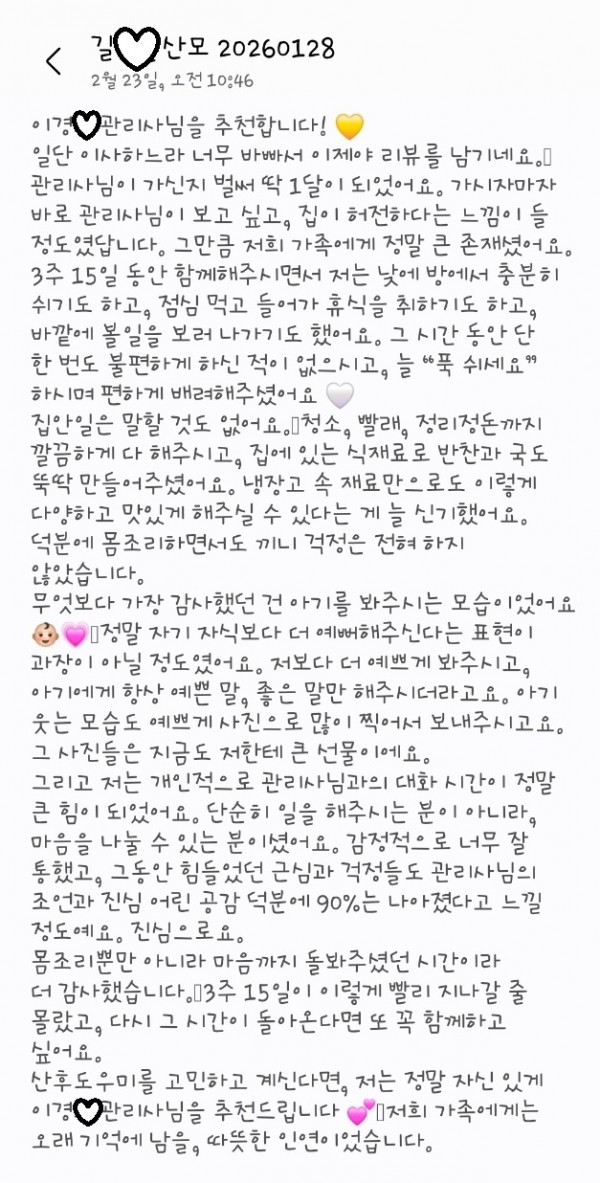 길🖤산모 20260128
2월 23일, 오전 10:46
이경🖤관리사님을 추천합니다! 💛
일단 이사하느라 너무 바빠서 이제야 리뷰를 남기네요.
관리사님이 가신지 벌써 딱 1달이 되었어요. 가시자마자
바로 관리사님이 보고 싶고, 집이 허전하다는 느낌이 들
정도였답니다. 그만큼 저희 가족에게 정말 큰 존재셨어요.
3주 15일 동안 함께해주시면서 저는 낮에 방에서 충분히
쉬기도 하고, 점심 먹고 들어가 휴식을 취하기도 하고,
바깥에 볼일을 보러 나가기도 했어요. 그 시간 동안 단
한 번도 불편하게 하신 적이 없으시고, 늘 “푹 쉬세요”
하시며 편하게 배려해주셨어요 🤍
집안일은 말할 것도 없어요. 청소, 빨래, 정리정돈까지
깔끔하게 다 해주시고, 집에 있는 식재료로 반찬과 국도
뚝딱 만들어주셨어요. 냉장고 속 재료만으로도 이렇게
다양하고 맛있게 해주실 수 있다는 게 늘 신기했어요.
덕분에 몸조리하면서도 끼니 걱정은 전혀 하지
않았습니다.
무엇보다 가장 감사했던 건 아기를 봐주시는 모습이었어요
👶🏻💗 정말 자기 자식보다 더 예뻐해주신다는 표현이
과장이 아닐 정도였어요. 저보다 더 예쁘게 봐주시고,
아기에게 항상 예쁜 말, 좋은 말만 해주시더라고요. 아기
웃는 모습도 예쁘게 사진으로 많이 찍어서 보내주시고요.
그 사진들은 지금도 저한테 큰 선물이에요.
그리고 저는 개인적으로 관리사님과의 대화 시간이 정말
큰 힘이 되었어요. 단순히 일을 해주시는 분이 아니라,
마음을 나눌 수 있는 분이셨어요. 감정적으로 너무 잘
통했고, 그동안 힘들었던 근심과 걱정들도 관리사님의
조언과 진심 어린 공감 덕분에 90%는 나아졌다고 느낄
정도예요. 진심으로요.
몸조리뿐만 아니라 마음까지 돌봐주셨던 시간이라
더 감사했습니다. 3주 15일이 이렇게 빨리 지나갈 줄
몰랐고, 다시 그 시간이 돌아온다면 또 꼭 함께하고
싶어요.
산후도우미를 고민하고 계신다면, 저는 정말 자신 있게
이경🖤관리사님을 추천드립니다 💕 저희 가족에게는
오래 기억에 남을, 따뜻한 인연이었습니다.